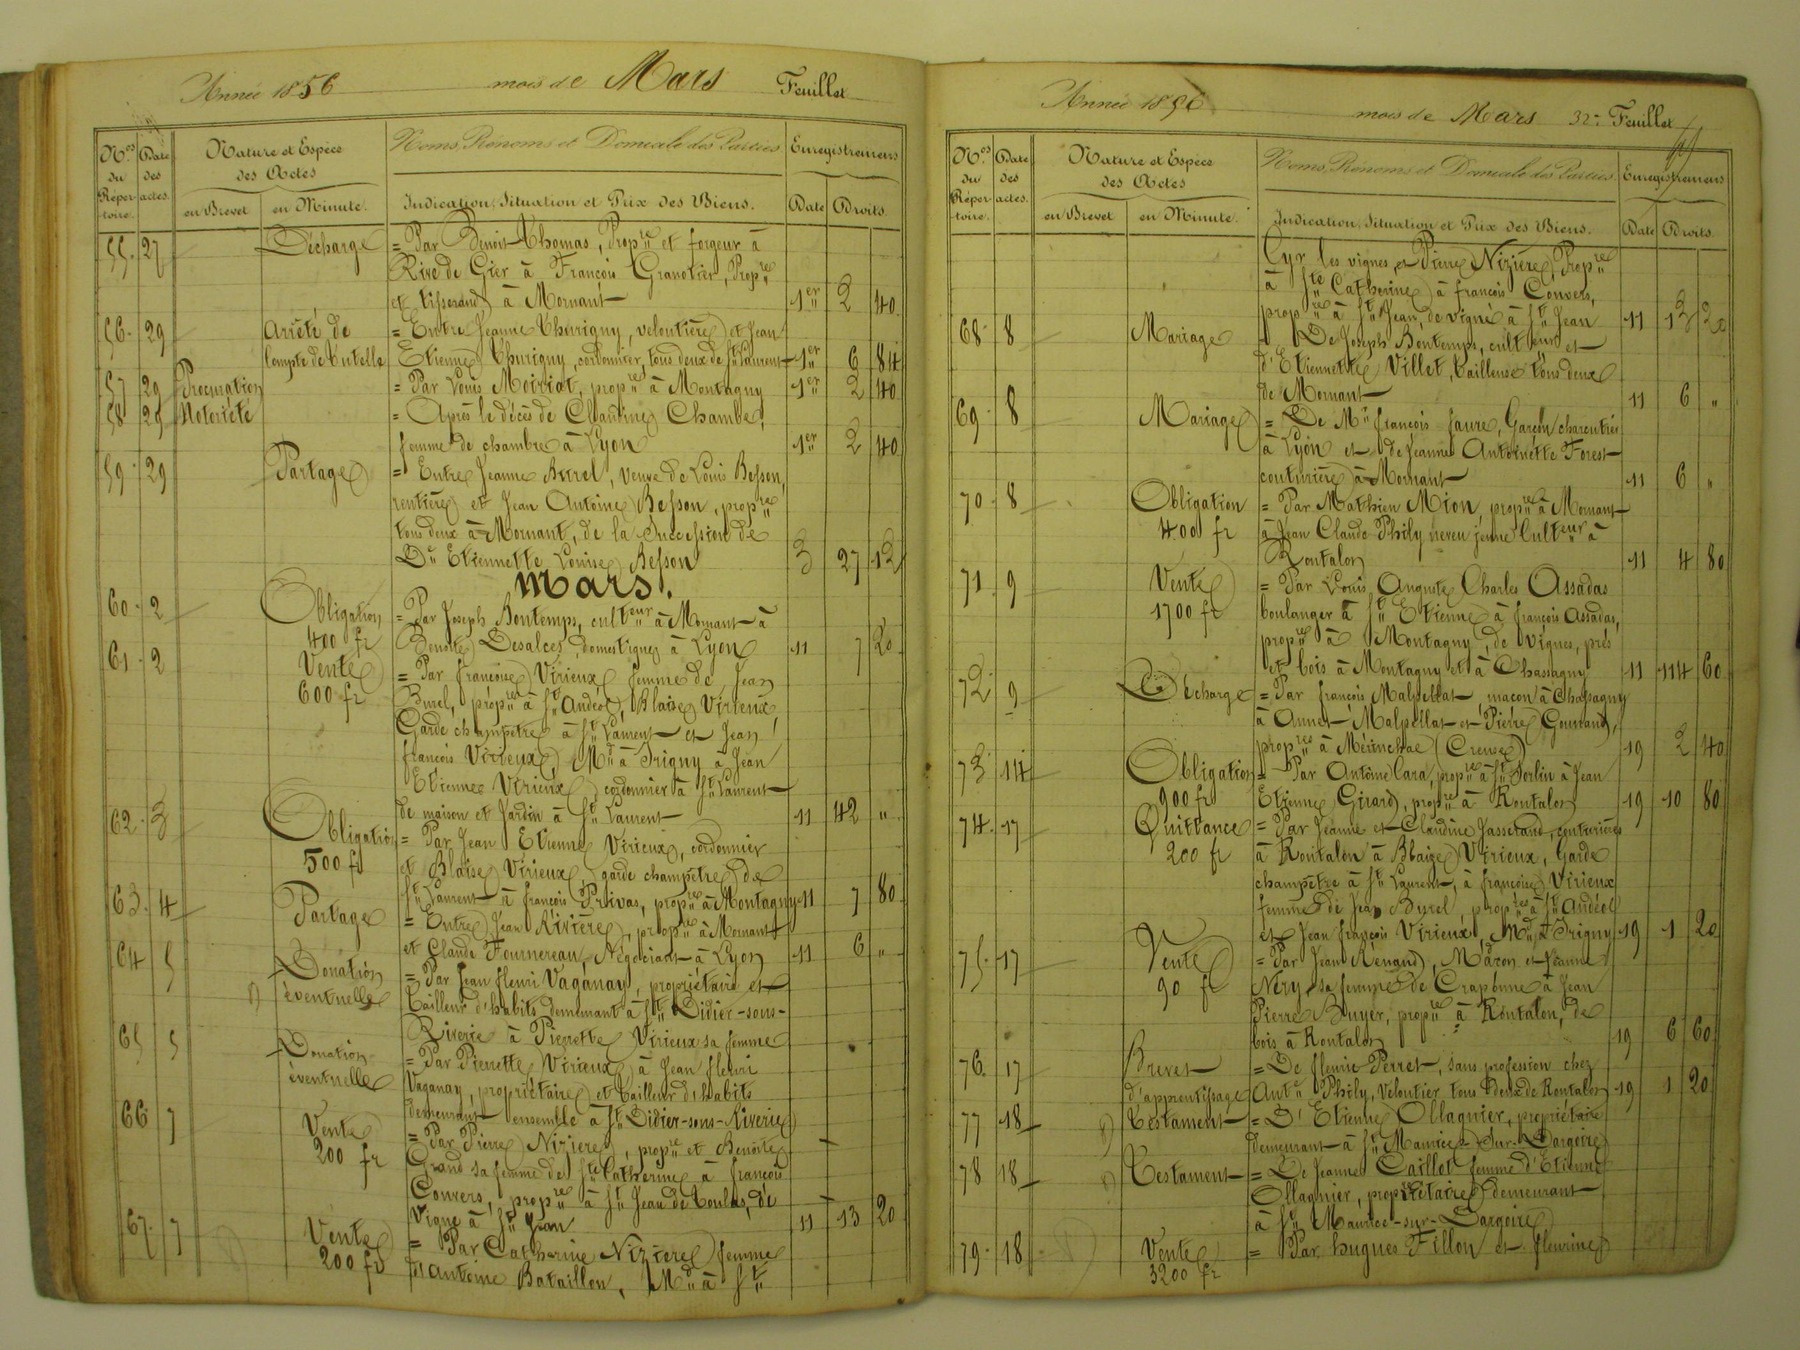 Année 1856 mois de Mars Feuillet
Nos du Répertoire. Date des actes. Nature et Espèce des Actes Noms, Prénoms et Domicile des Parties Enregistremens
en Brevet en Minute. Indication, Situation et Prix des Biens. Date Droits.
55. 27 Décharge = Par Benoit Thomas, Propre et forgeur à
Rive de Gier à François Granotier, Propre
et tisserand à Mornant 1er 2 40
56. 29 Arrêté de = Entre Jeanne Thurigny, veloutière et Jean
Compte de Tutelle Etienne Thurigny, cordonnier, tous deux de St Laurent 1er 6 84
57 29 Procuration = Par Louis Moiriat, propre à Montagny 1er 2 40
58 29 Notoriété = Après le décès de Claudine Chambe,
femme de chambre à Lyon 1er 2 40
59. 29 Partage = Entre Jeanne Burel, veuve de Louis Besson,
rentière et Jean Antoine Besson, propre
tous deux à Mornant, de la Succession de
De Etiennette Louise Besson 3 27 12
Mars.
60. 2 Obligation = Par Joseph Bontemps, culteur à Mornant à
400 fr Benoite Desalces, domestique à Lyon 11 7 20
61. 2 Vente = Par françoise Virieux, femme de Jean
600 fr Burel, propre à St Andéol, Blaise Virieux,
Garde champêtre à St Laurent et Jean
françois Virieux, Md à Irigny à Jean
Etienne Virieux cordonnier à St Laurent
de maison et Jardin à St Laurent 11 42 "
62. 3 Obligation = Par Jean Etienne Virieux, cordonnier
500 fr et Blaise Virieux, garde champêtre de
St Laurent à françois Privas, propre à Montagny 11 7 80
63. 4 Partage = Entre Jean Rivière, propre à Mornant
et Claude Fournereau, Négociant à Lyon 11 6 "
64 5 Donation = Par Jean fleuri Vaganay, propriétaire et
éventuelle tailleur d'habits demeurant à St Didier-sous-
Riverie à Pierrette Virieux sa femme
65 5 Donation = Par Pierrette Virieux à Jean fleuri
éventuelle Vaganay, propriétaire et tailleur d'habits
demeurant ensemble à St Didier-sous-Riverie
66 7 Vente = Par Pierre Nizière, propre et Benoite
200 fr Grand sa femme de Ste Catherine à françois
Convers, propre à St Jean de Toulas, de
Vigne à St Jean 11 13 20
67. 7 Vente = Par Catherine Nizière femme
200 fr d'Antoine Bataillon, Md à St
Année 1856 mois de Mars 32e Feuillet
Nos du Répertoire. Date des actes. Nature et Espèce des Actes Noms, Prénoms et Domicile des Parties Enregistremens
en Brevet en Minute. Indication, Situation et Prix des Biens. Date Droits.
Cyr les vignes, et Pierre Nizière Propre
à Ste Catherine à françois Convers,
propre à St Jean, de vigne à St Jean 11 13 20
68. 8 Mariage = De Joseph Bontemps, culteur et
d'Etiennette Villet, tailleuse tous deux
de Mornant 11 6 "
69. 8 Mariage = De Mr françois faure, Garçon charcutier
à Lyon et de Jeanne Antoinette Forest
couturière à Mornant 11 6 "
70. 8 Obligation = Par Mathieu Mion, propre à Mornant
400 fr à Jean Claude Phily neveu jeune Culteur à
Rontalon 11 4 80
71. 9 Vente = Par Louis Auguste Charles Assadas
1700 fr boulanger à St Etienne à françois Assadas,
propre à Montagny, de vignes, prés
et bois à Montagny et à Chassagny 11 114 60
72. 9 Décharge = Par françois Malpellat, maçon à Chassagny
à Annet Malpellat et Pierre Gourand,
propres à Mérinchal (Creuse) 19 2 40
73. 14 Obligation = Par Antoine Cara, propre à St Sorlin à Jean
900 fr Etienne Girard, propre à Rontalon 19 10 80
74. 17 Quittance = Par Jeanne et Claudine Jasserand, couturières
200 fr à Rontalon à Blaize Virieux, Garde
champêtre à St Laurent, à françoise Virieux
femme de Jean Burel, propres à St Andéol
et Jean françois Virieux, Md à Irigny 19 1 20
75. 17 Vente = Par Jean Renaud, Maçon et Jeanne
90 fr Néry sa femme de Craponne à Jean
Pierre Bruyer, propre à Rontalon, de
bois à Rontalon 19 6 60
76. 17 Brevet = De fleurie Perret, sans profession chez
d'apprentissage Ante Phily, Veloutier tous deux de Rontalon 19 1 20
77 18 Testament = D'Etienne Ollagnier, propriétaire
demeurant à St Maurice-Sur-Dargoire
78 18 Testament = De Jeanne Caillot femme d'Etienne
Ollagnier, propriétaire demeurant
à St Maurice-sur-Dargoire
79. 18 Vente = Par hugues Fillon et fleurine
3200 fr